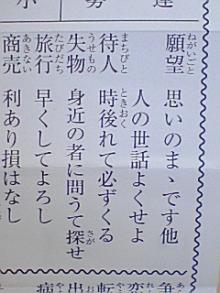 願望 思いのまゝです他
人の世話よくせよ
待人 時後れて必ずくる
失物 身近の者に問うて探せ
旅行 早くしてよろし
商売 利あり損はなし
ねがいごと
まちびと
うせもの
たびだち
あきない
ときおく
さが